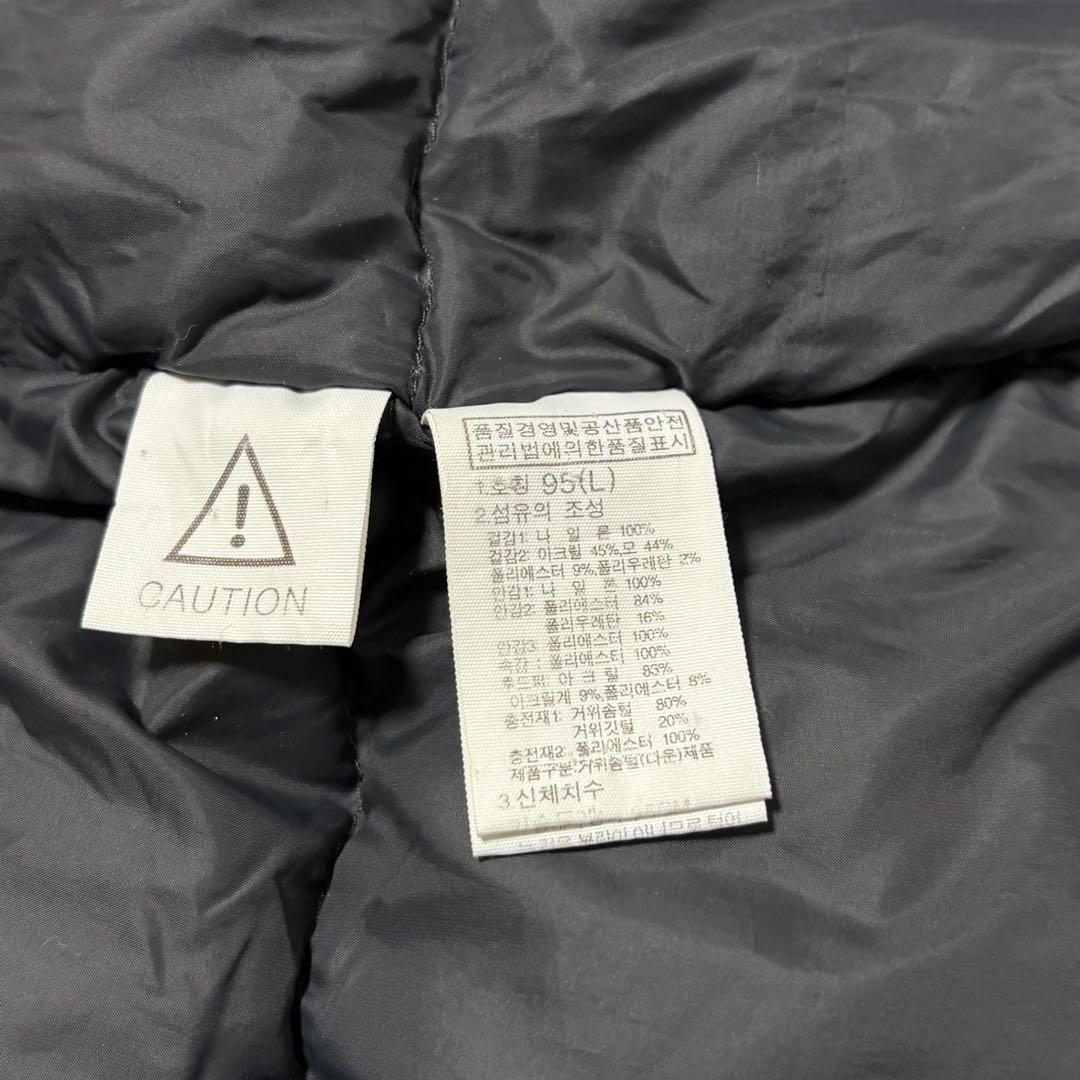 !
CAUTION
품질경영및공산품안전
관리법에의한품질표시
1.호칭 95(L)
2.섬유의 조성
겉감1: 나 일 론 100%
겉감2: 아크릴 45%,모 44%
폴리에스터 9%,폴리우레탄 2%
안감1: 나 일 론 100%
안감2: 폴리에스터 84%
폴리우레탄 16%
안감3: 폴리에스터 100%
속감 : 폴리에스터 100%
후드퍼: 아 크 릴 83%
아크릴계 9%,폴리에스터 8%
충전재1: 거위솜털 80%
거위깃털 20%
충전재2: 폴리에스터 100%
제품구분:거위솜털(다운)제품
3.신체치수